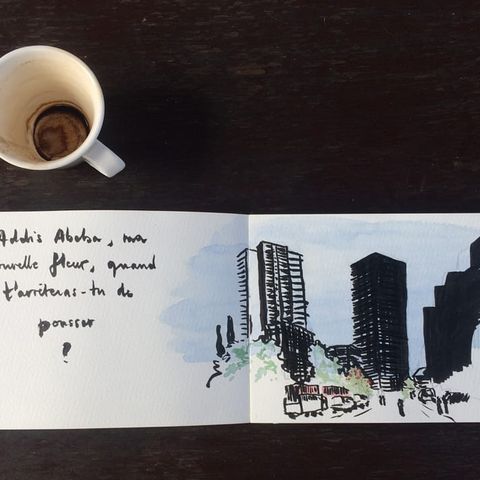 Addis Abeba, ma
nouvelle fleur, quand
t'arrêteras-tu de
pousser
?